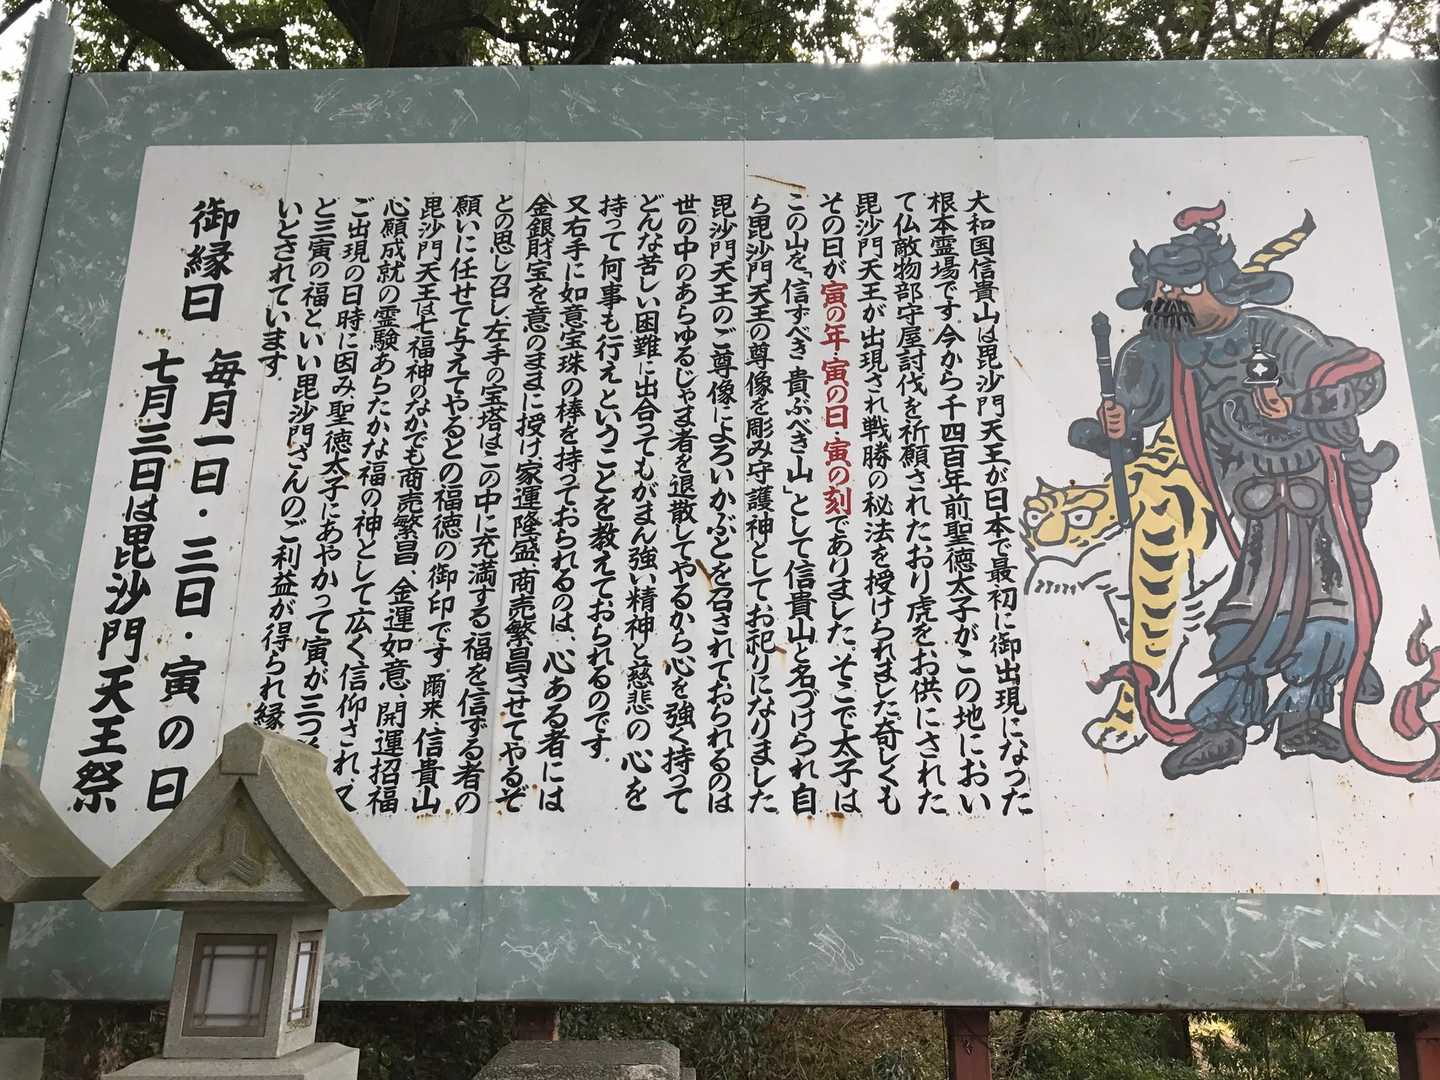 大和国信貴山は毘沙門天王が日本で最初に御出現になった
根本霊場です。今から千四百年前聖徳太子がこの地におい
て仏敵物部守屋討伐を祈願されたおり虎をお供にされた
毘沙門天王が出現され戦勝の秘法を授けられました。奇しくも
その日が寅の年・寅の日・寅の刻でありました。そこで太子は
この山を「信ずべき貴ぶべき山」として信貴山と名づけられ自
ら毘沙門天王の尊像を彫み守護神としてお祀りになりました
毘沙門天王のご尊像によろいかぶとを召されておられるのは
世の中のあらゆるじゃま者を退散してやるから心を強く持って
どんな苦しい困難に出合ってもがまん強い精神と慈悲の心を
持って何事も行えということを教えておられるのです。
又右手に如意宝珠の棒を持っておられるのは、心ある者には
金銀財宝を意のままに授け家運隆盛、商売繁昌させてやるぞ
との思し召し、左手の宝塔はこの中に充満する福を信ずる者の
願いに任せて与えてやるとの福徳の御印です。爾来、信貴山
毘沙門天王は七福神のなかでも商売繁昌、金運如意、開運招福
心願成就の霊験あらたかな福の神として広く信仰され、又
ご出現の日時に因み、聖徳太子にあやかって寅が三つ
ど三寅の福といい毘沙門さんのご利益が得られ縁
いとされています。
御縁日 毎月一日・三日・寅の日
七月三日は毘沙門天王祭